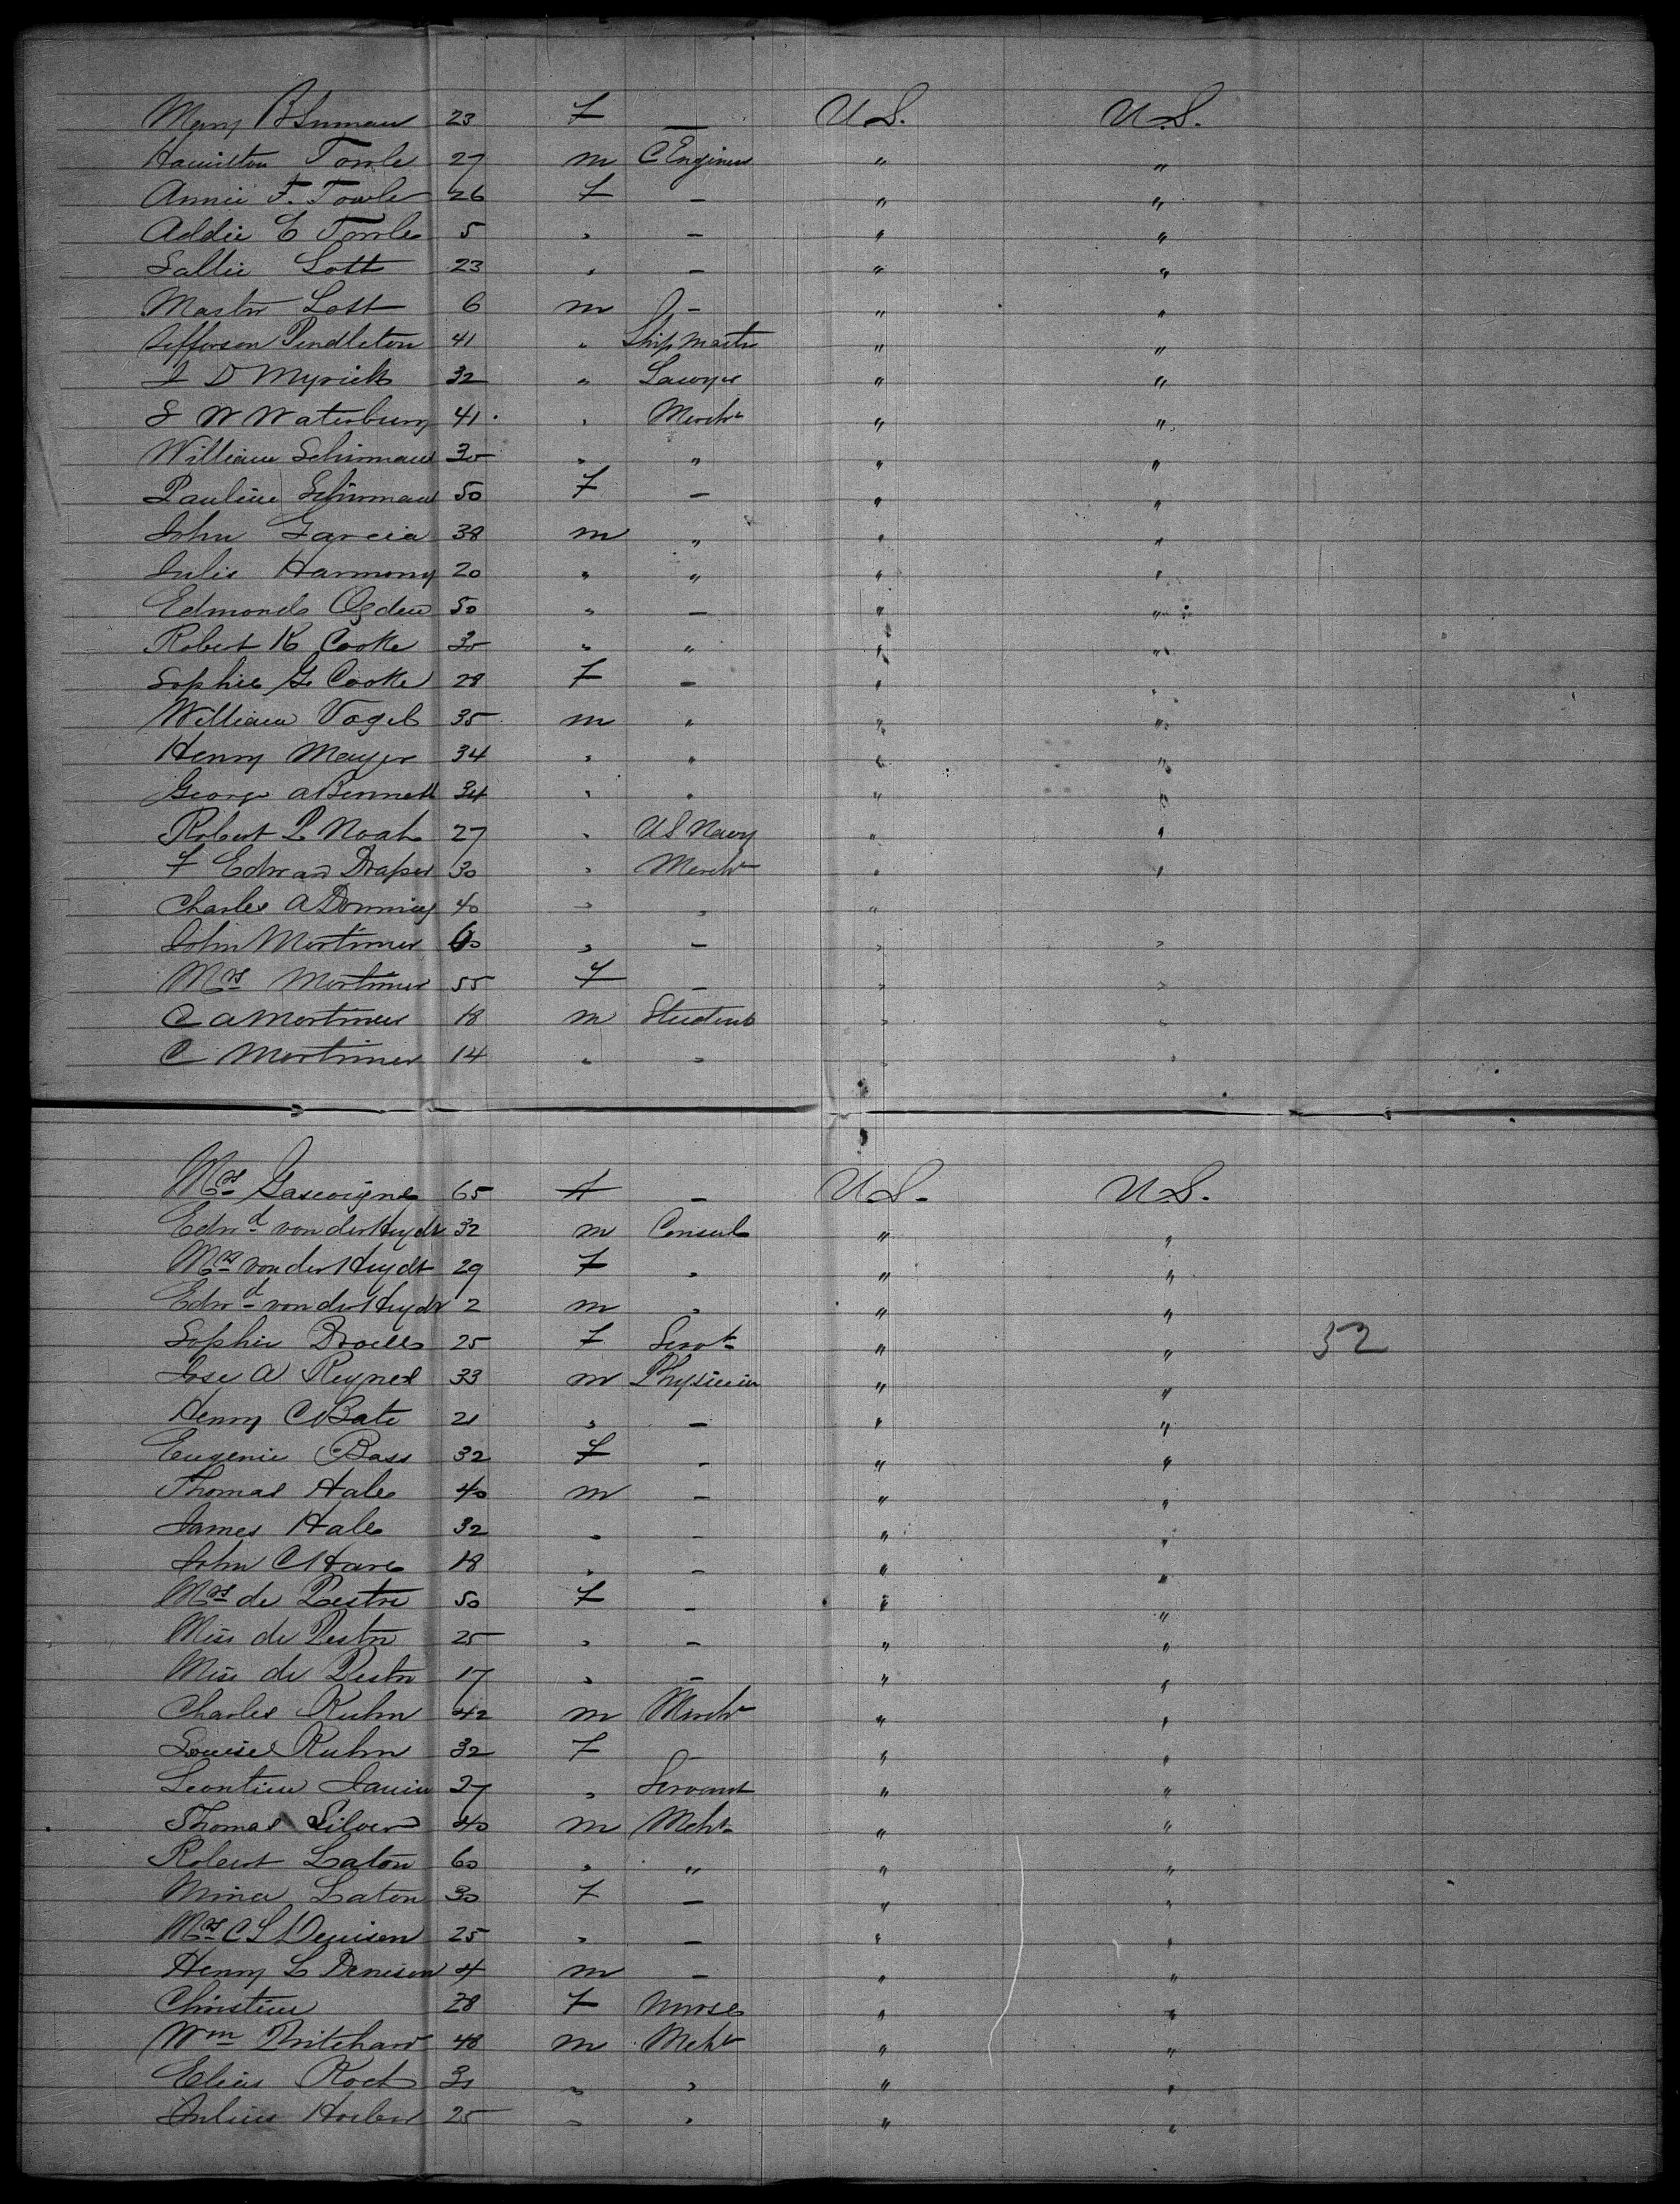 Mary B Inman 23 F — U.S. U.S.
Hamilton Towle 27 m C Engineer " "
Annie F. Towle 26 F — " "
Addie E Towle 5 " — " "
Sallie Lott 23 " — " "
Master Lott 6 m — " "
Jefferson Pendleton 41 " Ship Master " "
J D Myrick 32 " Lawyer " "
S W Waterbury 41 " Mercht " "
William Schirman 30 " " " "
Pauline Schirman 50 F — " "
John Garcia 38 m " " "
Julis Harmony 20 " " " "
Edmond Ogden 50 " — " "
Robert K Cooke 30 " " " "
Sophie G Cooke 28 F — " "
William Vogel 35 m " " "
Henry Mayer 34 " " " "
George A Bennett 34 " " " "
Robert P Noah 27 " U S Navy " "
F Edward Draper 30 " Mercht " "
Charles A 40 " " "
John Mortimer 60 " — " "
Mrs Mortimer 55 F — " "
C A Mortimer 18 m Student " "
C Mortimer 14 " " " "
Mrs Gascoigne 65 F — U.S. U.S.
Edwd von der Heydt 32 m Consul " "
Mrs von der Heydt 29 F " " "
Edwd von der Heydt 2 m " " "
Sophie 25 F Servt " " 32
Jose A Reynes 33 m Physician " "
Henry C Bate 21 " — " "
Eugenie Bass 32 F — " "
Thomas Hale 40 m — " "
James Hale 32 " — " "
John C Hare 18 " — " "
Mrs de Pestre 50 F — " "
Miss de Pestre 25 " — " "
Miss de Pestre 17 " — " "
Charles Kuhn 42 m Mercht " "
Louise Kuhn 32 F — " "
Leontine 27 " Servant " "
Thomas Silver 40 m Mcht " "
Robert Laton 60 " " " "
Mina Laton 30 F — " "
Mrs C S Denison 25 " — " "
Henry L Denison 4 m — " "
Christine 28 F Nurse " "
Wm Pritchard 48 m Mcht " "
Elias Koch " " " "
Julius 25 " " " "